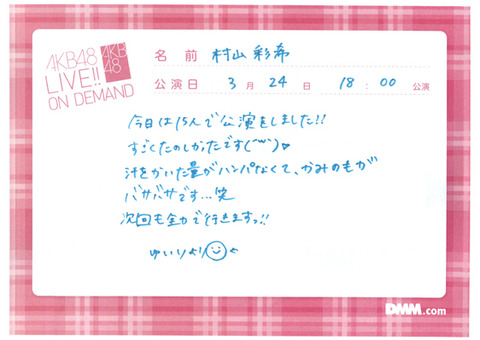 AKB48
LIVE!!
ON DEMAND
AKB
48
名 前 村山 彩希
公演日 3 月 24 日 18 : 00 公演
今日は15人で公演をしました!!
すごくたのしかったです(^^)♥
汗をかいた量がハンパなくて、かみのもが
バサバサです...笑
次回も全力で行きますっ!!
ゆいりより
DMM.com